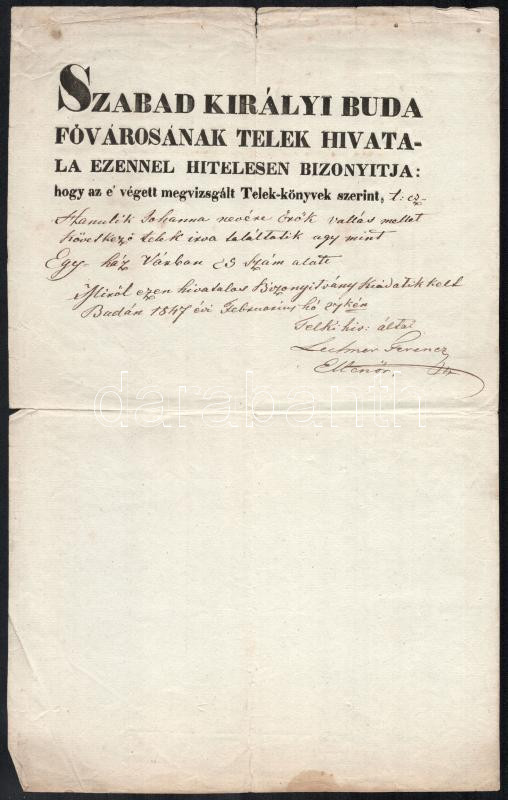 SZABAD KIRÁLYI BUDA
FŐVÁROSÁNAK TELEK HIVATA-
LA EZENNEL HITELESEN BIZONYITJA:
hogy az e' végett megvizsgált Telek-könyvek szerint, t: cz-
Hanulik Johanna nevére Örök vallás mellett
következő telek irva találtatik ugy mint
Egy ház Várban 23 szám alatt
Miről ezen hivatalos Bizonyitvány kiadatik kelt
Budán 1847 évi Februarius hó
Telki hiv: által
Lechner Ferencz
Ellenőr
darabanth